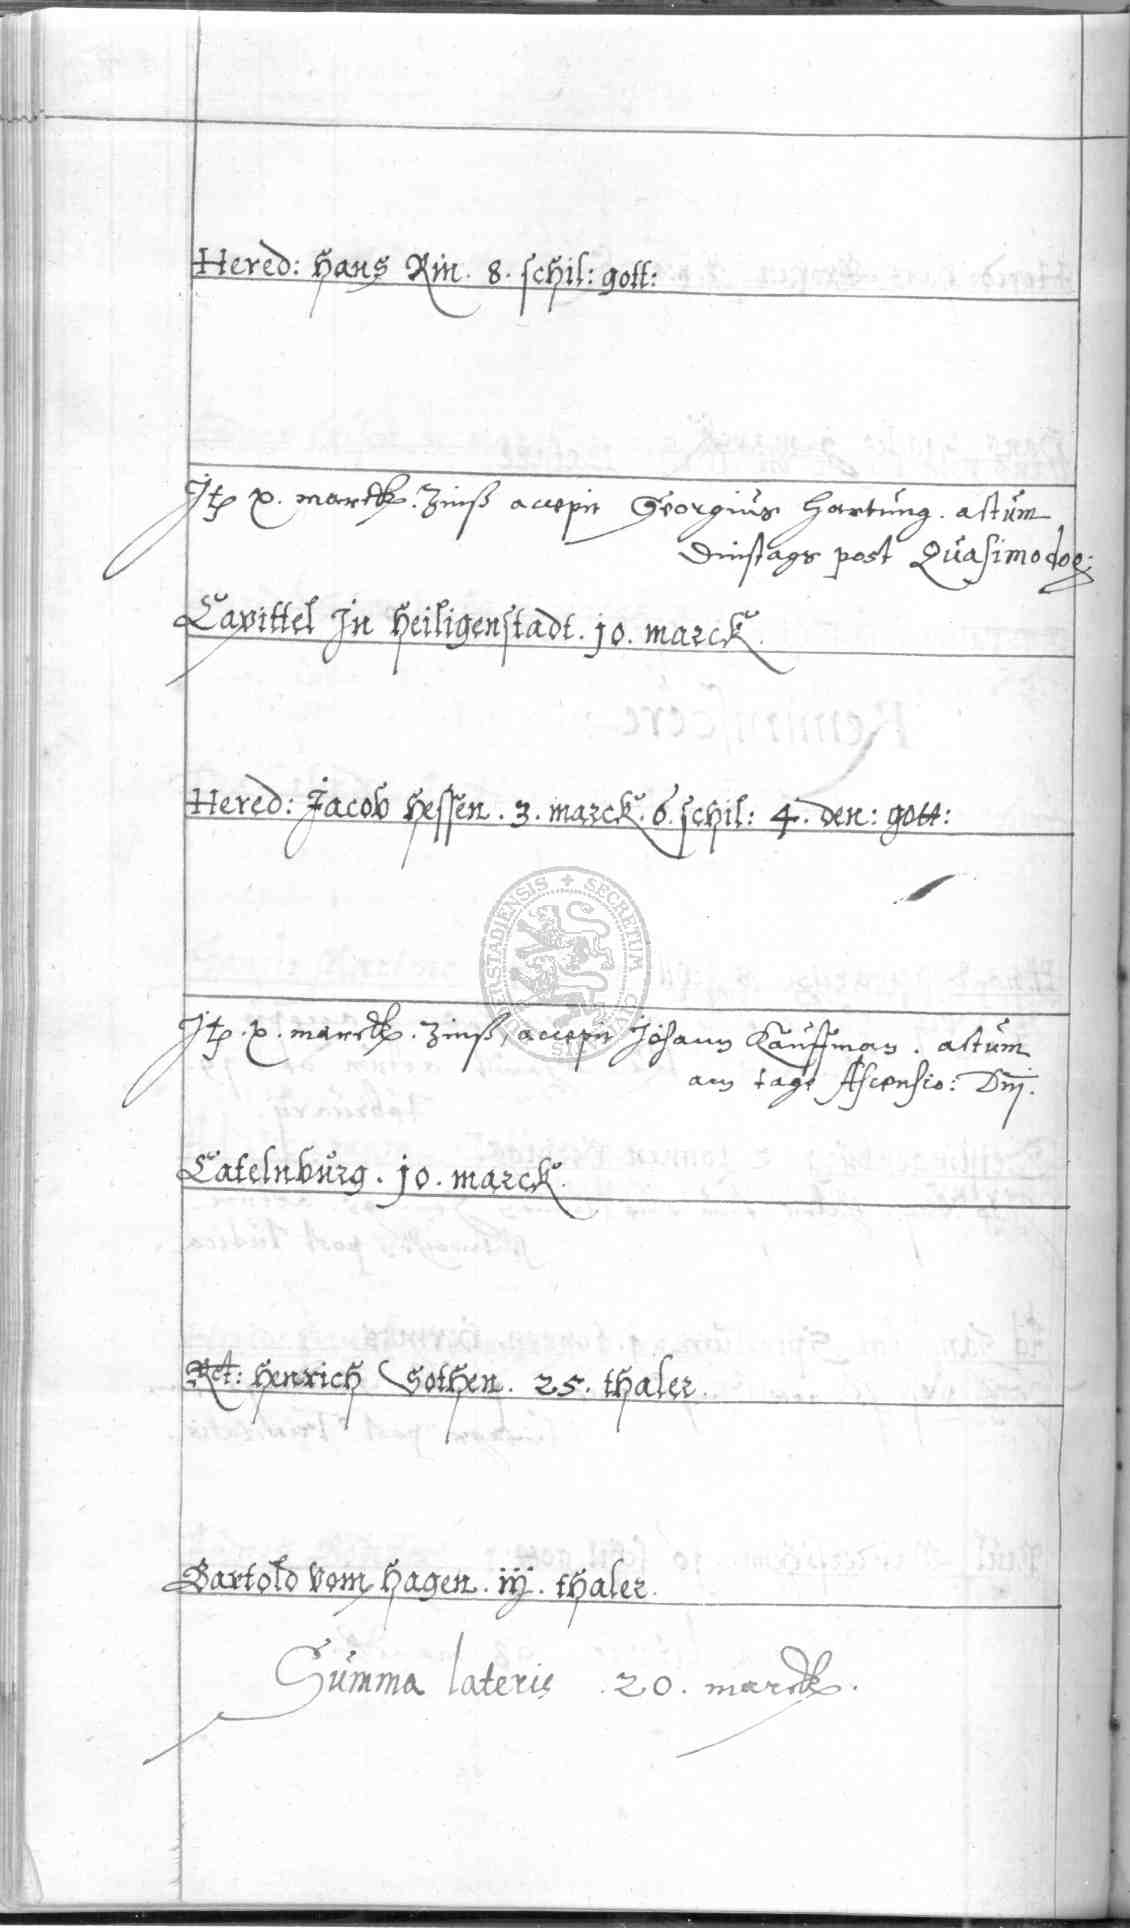 Hered: Hans Rin. 8. schil: gott:
Jtem x. marck. Zinß accepit Georgius Hartung. actum
Dinstags post Quasimodog:
Capittel Jn Heiligenstadt. 10. marck.
Hered: Jacob Hessen. 3. marck. 6. schil: 4. den: gott:
SECRETUM
Jtem. x. marck. Zinß, accepit Johann Kauffman. actum
am tage Ascensio: Dnj.
Catelnburg. 10. marck.
Rct: Henrich Sothen. 25. thaler.
Bartold vom Hagen. iij. thaler.
Summa lateris . 20. marck.